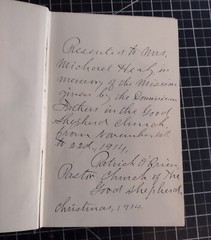 Presented to Mrs.
Michael Healy in
memory of the Mission
given by the Dominican
Fathers in the Good
Shepherd Church,
from November 1st
to 22d, 1914.
Patrick O'Brien
Pastor Church of the
Good Shepherd
Christmas, 1914.